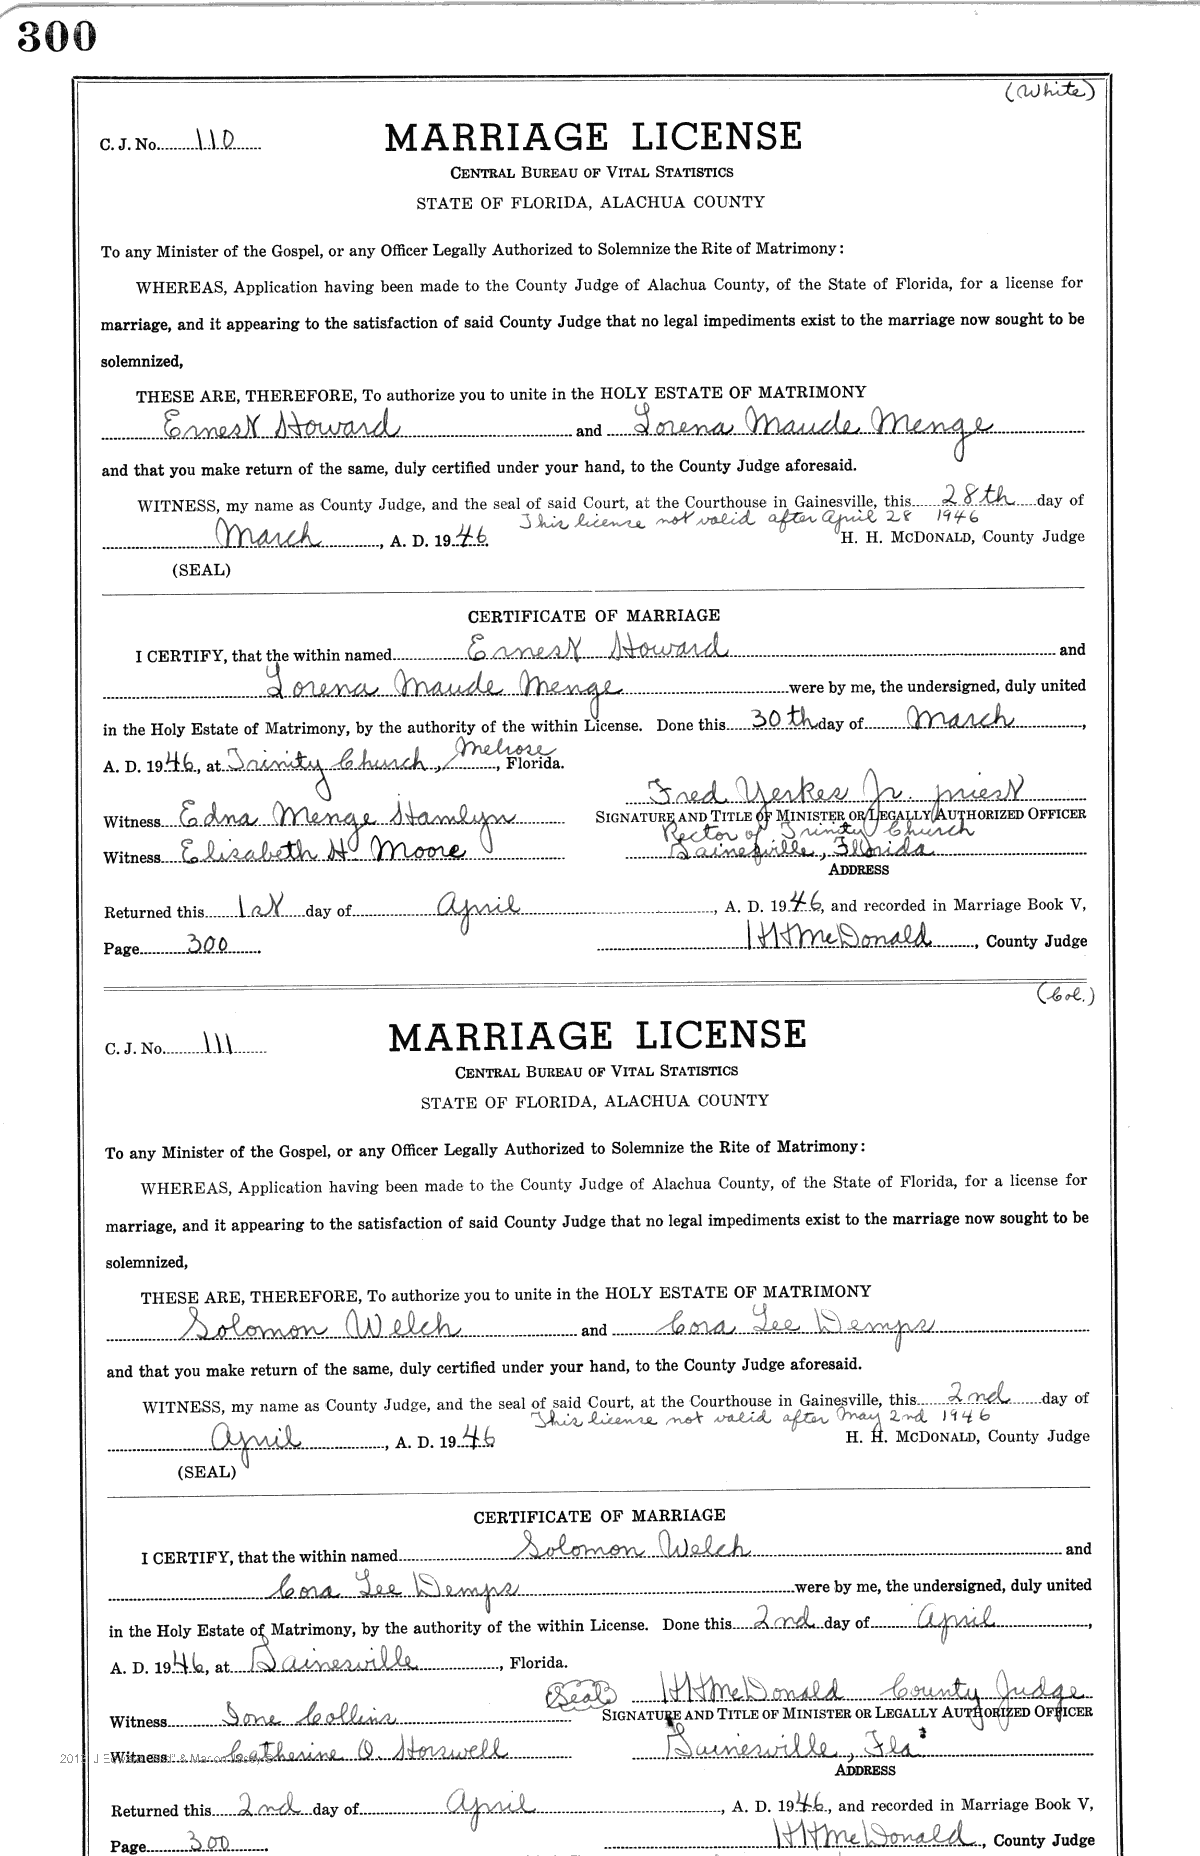 300
(White)
C. J. No. 110 MARRIAGE LICENSE
CENTRAL BUREAU OF VITAL STATISTICS
STATE OF FLORIDA, ALACHUA COUNTY
To any Minister of the Gospel, or any Officer Legally Authorized to Solemnize the Rite of Matrimony:
WHEREAS, Application having been made to the County Judge of Alachua County, of the State of Florida, for a license for
marriage, and it appearing to the satisfaction of said County Judge that no legal impediments exist to the marriage now sought to be
solemnized,
THESE ARE, THEREFORE, To authorize you to unite in the HOLY ESTATE OF MATRIMONY
Ernest Howard and Lorena Maude Menge
and that you make return of the same, duly certified under your hand, to the County Judge aforesaid.
WITNESS, my name as County Judge, and the seal of said Court, at the Courthouse in Gainesville, this 28th day of
This license not valid after April 28 1946
March, A. D. 1946. H. H. MCDONALD, County Judge
(SEAL)
CERTIFICATE OF MARRIAGE
I CERTIFY, that the within named Ernest Howard and
Lorena Maude Menge were by me, the undersigned, duly united
in the Holy Estate of Matrimony, by the authority of the within License. Done this 30th day of March,
A. D. 1946, at Trinity Church, Melrose, Florida.
Fred Yerkes Jr. priest
Witness Edna Menge Hamlyn SIGNATURE AND TITLE OF MINISTER OR LEGALLY AUTHORIZED OFFICER
Rector of Trinity Church
Witness Elizabeth H Moore Gainesville, Florida
ADDRESS
Returned this 1st day of April, A. D. 1946, and recorded in Marriage Book V,
Page 300 HHMcDonald, County Judge
(Col.)
C. J. No. 111 MARRIAGE LICENSE
CENTRAL BUREAU OF VITAL STATISTICS
STATE OF FLORIDA, ALACHUA COUNTY
To any Minister of the Gospel, or any Officer Legally Authorized to Solemnize the Rite of Matrimony:
WHEREAS, Application having been made to the County Judge of Alachua County, of the State of Florida, for a license for
marriage, and it appearing to the satisfaction of said County Judge that no legal impediments exist to the marriage now sought to be
solemnized,
THESE ARE, THEREFORE, To authorize you to unite in the HOLY ESTATE OF MATRIMONY
Solomon Welch and Cora Lee Demps
and that you make return of the same, duly certified under your hand, to the County Judge aforesaid.
WITNESS, my name as County Judge, and the seal of said Court, at the Courthouse in Gainesville, this 2nd day of
This license not valid after May 2nd 1946
April, A. D. 1946 H. H. MCDONALD, County Judge
(SEAL)
CERTIFICATE OF MARRIAGE
I CERTIFY, that the within named Solomon Welch and
Cora Lee Demps were by me, the undersigned, duly united
in the Holy Estate of Matrimony, by the authority of the within License. Done this 2nd day of April,
A. D. 1946, at Gainesville, Florida.
(Seal) HHMcDonald County Judge
Witness Ione Collins SIGNATURE AND TITLE OF MINISTER OR LEGALLY AUTHORIZED OFFICER
Witness Catherine O. Horswell Gainesville, Fla
ADDRESS
Returned this 2nd day of April, A. D. 1946, and recorded in Marriage Book V,
Page 300 HHMcDonald, County Judge